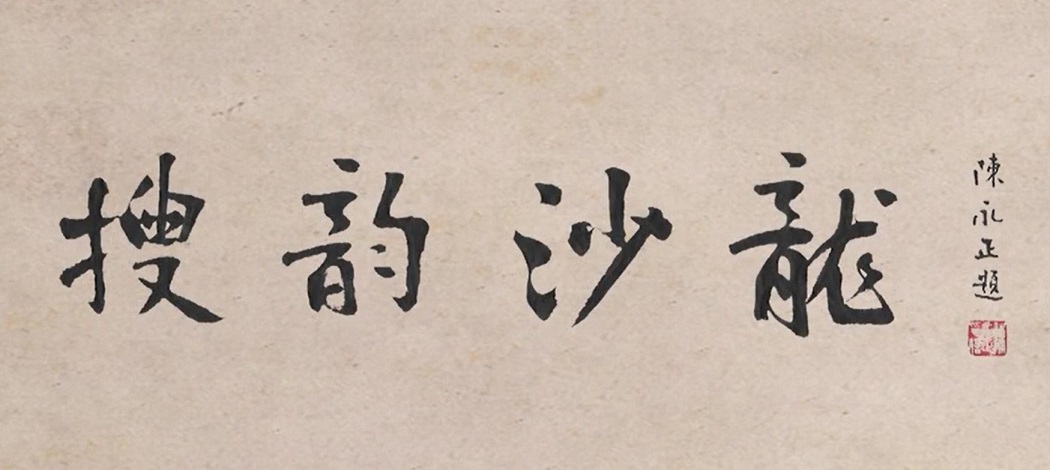 搜韵沙龍
陳永正題